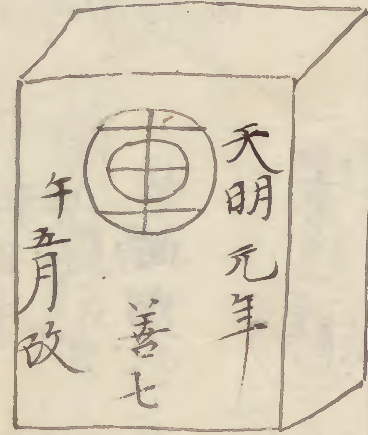 天明元年
車
善七
午五月改